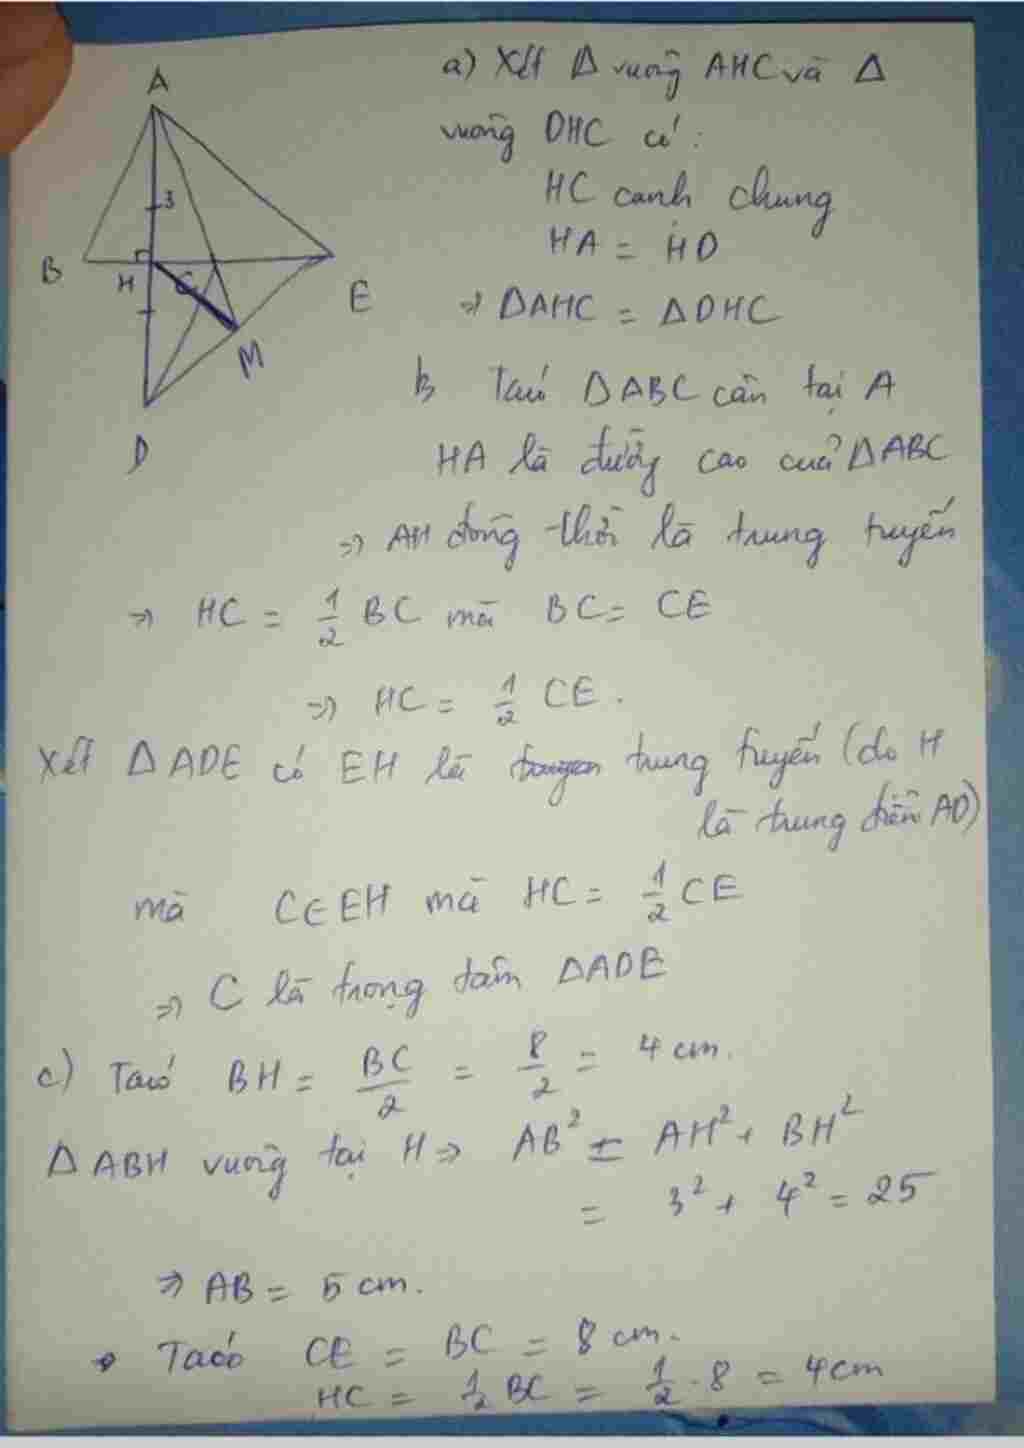 A
3
B
H
C
E
M
D
a) Xét Δ vuông AHC và Δ
vuông DHC có :
HC cạnh chung
HA = HD
=> ΔAHC = ΔDHC
b Ta có ΔABC cân tại A
HA là đường cao của ΔABC
=> AH đồng thời là trung tuyến
=> HC = 1/2 BC mà BC = CE
=> HC = 1/2 CE.
Xét ΔADE có EH là trung tuyến (do H
là trung điểm AD)
mà C∈EH mà HC = 1/2 CE
=> C là trọng tâm ΔADE
c) Ta có BH = BC/2 = 8/2 = 4 cm.
ΔABH vuông tại H => AB² = AH² + BH²
= 3² + 4² = 25
=> AB = 5 cm.
Ta có CE = BC = 8 cm.
HC = 1/2 BC = 1/2 . 8 = 4cm